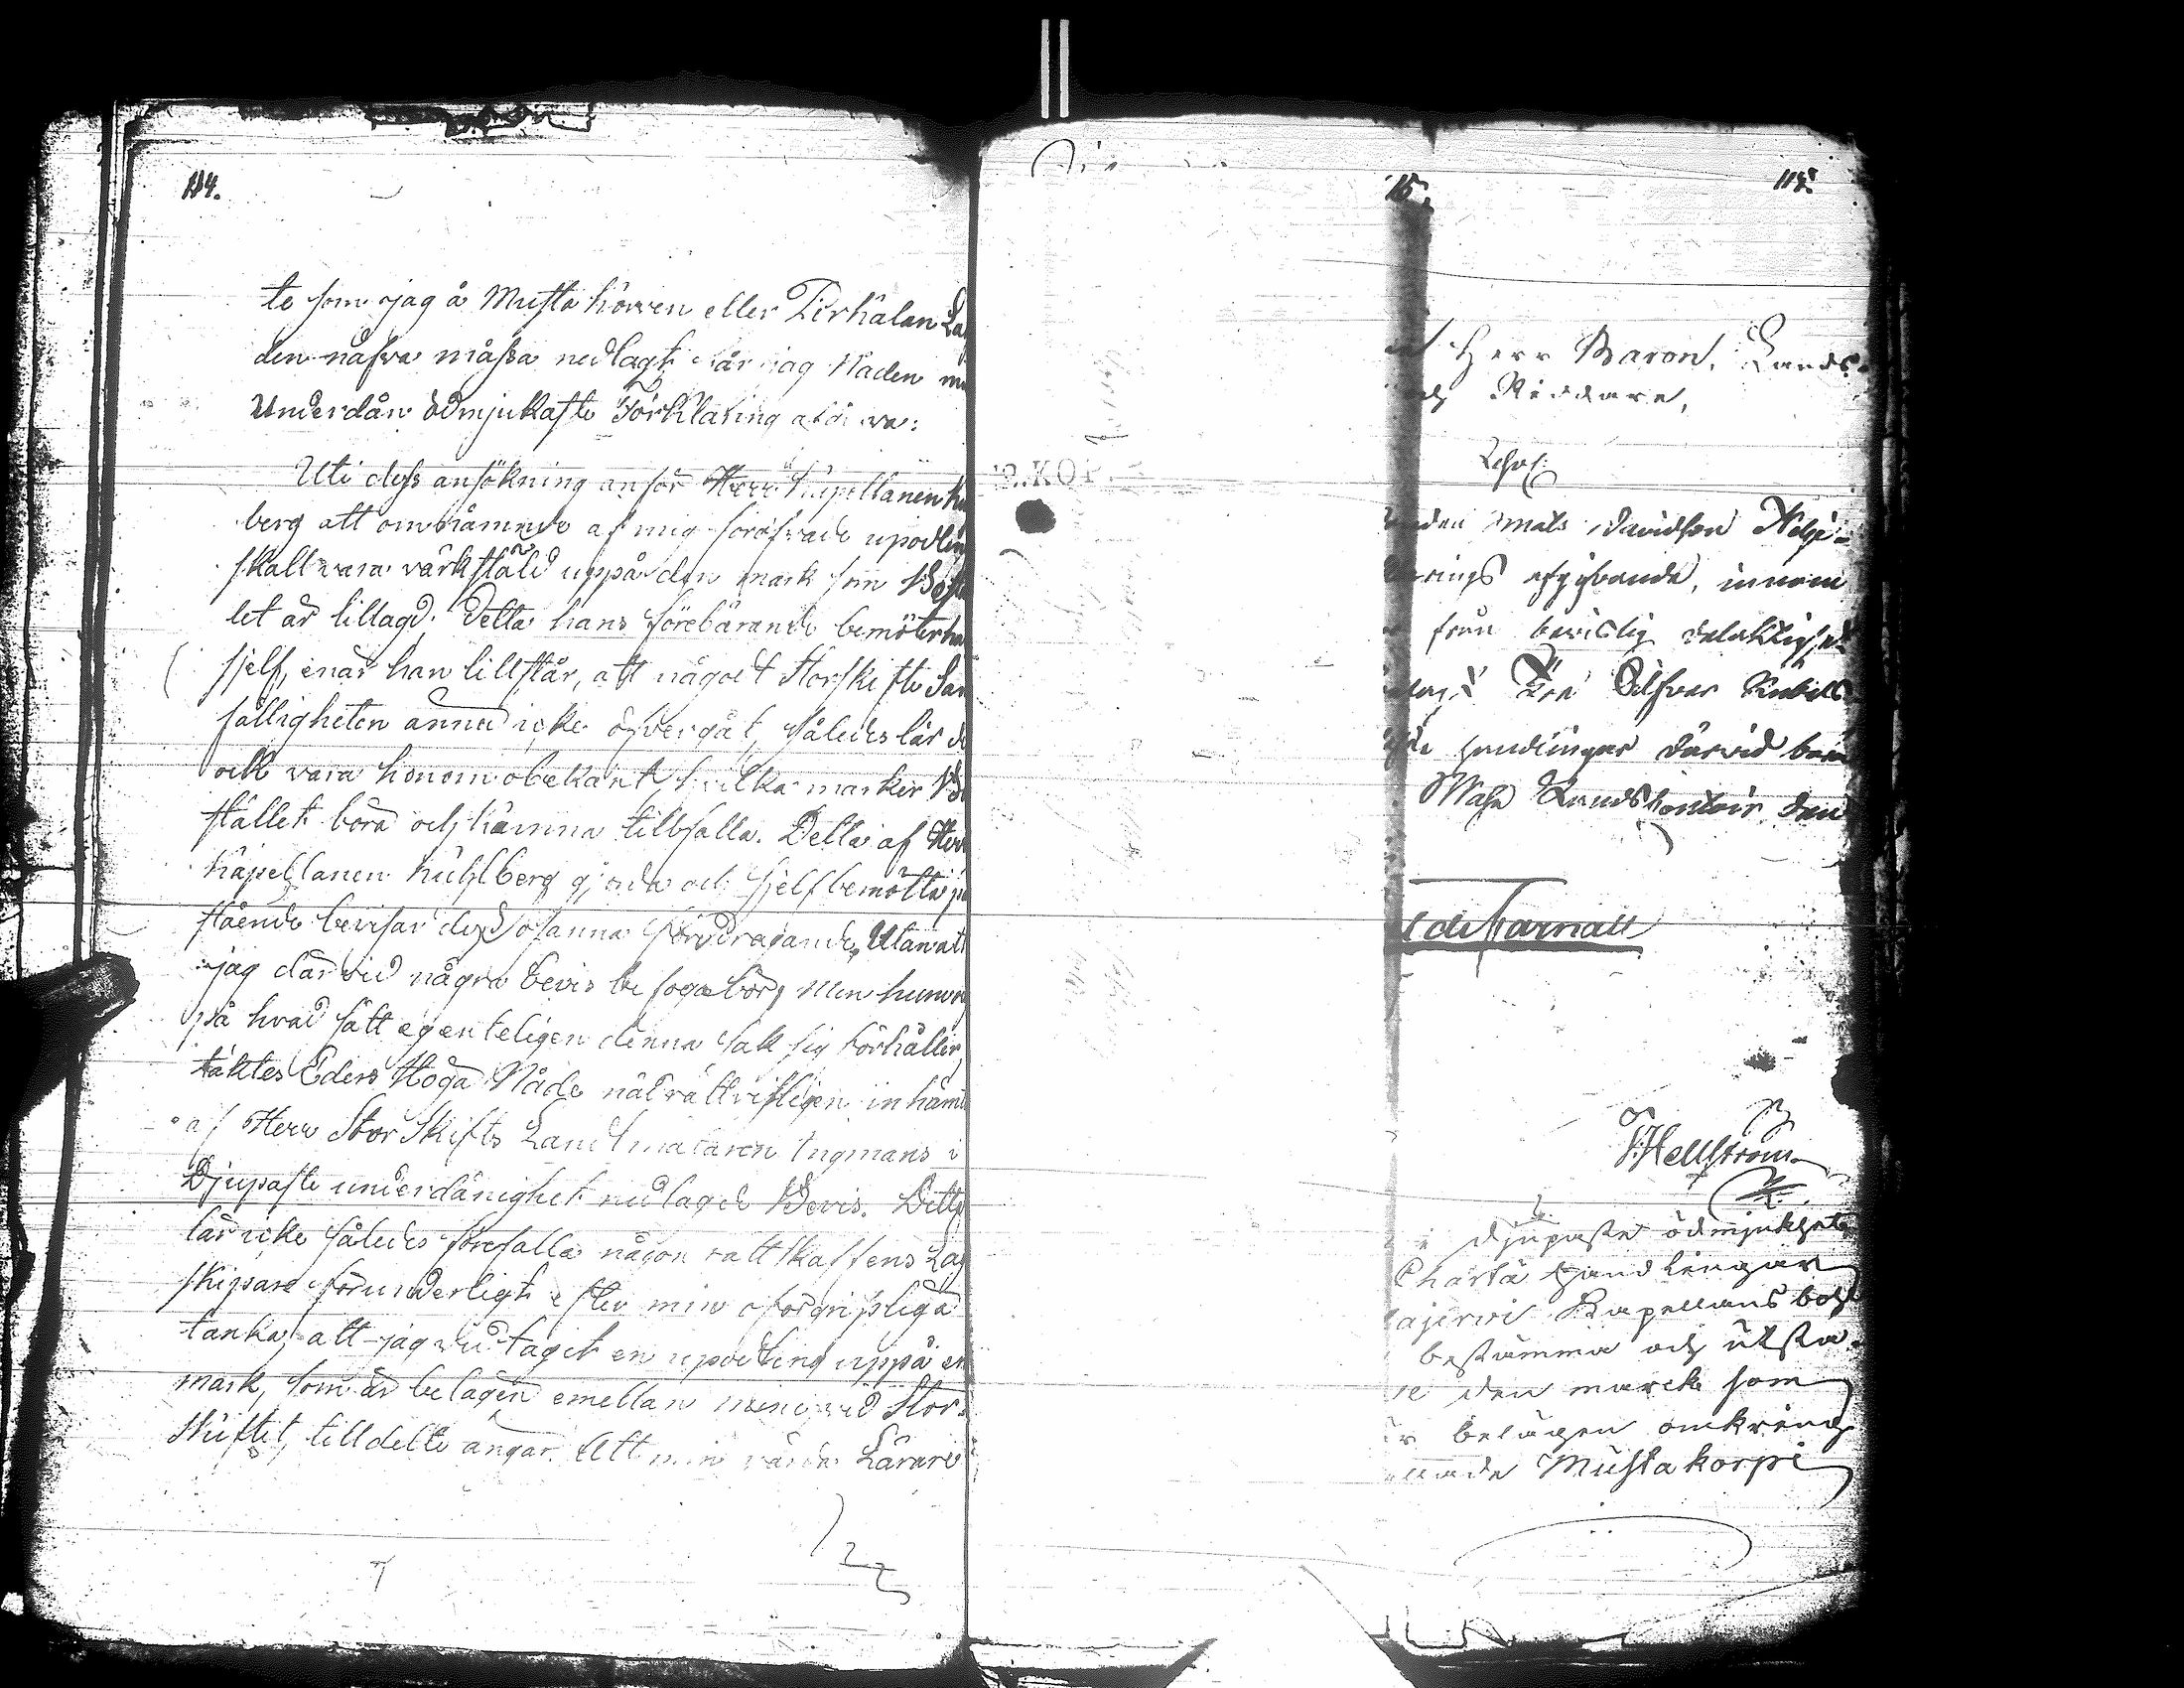 114.
te som jag å Musta körren eller Pirhälan La
den näfra måssa nedlagt får jag Naden
Underdån ödmjukaste Förklaring afgifva:
Uti dess ansökning anför Herr Kapellanen Ku
berg att omnämnde af mig föröfvade upodlin
skall vara värkstäld uppå den mark som Bost
let är tillagd. Detta hans förebärande bemöter han
sjelf, enär han tillstår, att någodt Storskifte Sam
fälligheten ännu icke öfvergåt, således lär de
ock vara honom obekant hvilka marker Bo
stället böra och kunna tillfalla. Detta af Herr
Kapellanen Kuhlberg gjorda och sjelf bemötta på
stående bevisar dess osanna fördragande, utan att
jag därvid några bevis befoga bör, men huru
på hvad sätt egenteligen denna sak sig förhåller,
täktes Eders Höga Nåde nåd rättvisligen inhäm
af Herr Stor Skifts Landtmätaren Ingmans i
Djupaste underdånighet nedlagde Bevis. Detta
lär icke således förefalla någon rättskaffens Lag
skipare förunderligt efter min oförgripliga
tanka, att jag vidtagit en upodling uppå en
mark, som är belägen emellan mine vid Stor
Skiftet tilldelte ängar. Att min Lärare
R.KOP.
15.
115.
Herr Baron, Lands
och Riddare,
Mats Davidson
rings afgifvande, innom
från bevislig delaktighet
Tre Silfver Rubels
handlingar därvid
Wasa Landskontoir den
de Carnall
Hellström
i djupaste ödmjukhet
Charta Handlingar
ajerwi Kapellans bohl
bestämma och utsta
den marck som
är belägen omkring
nade Mustakorpi